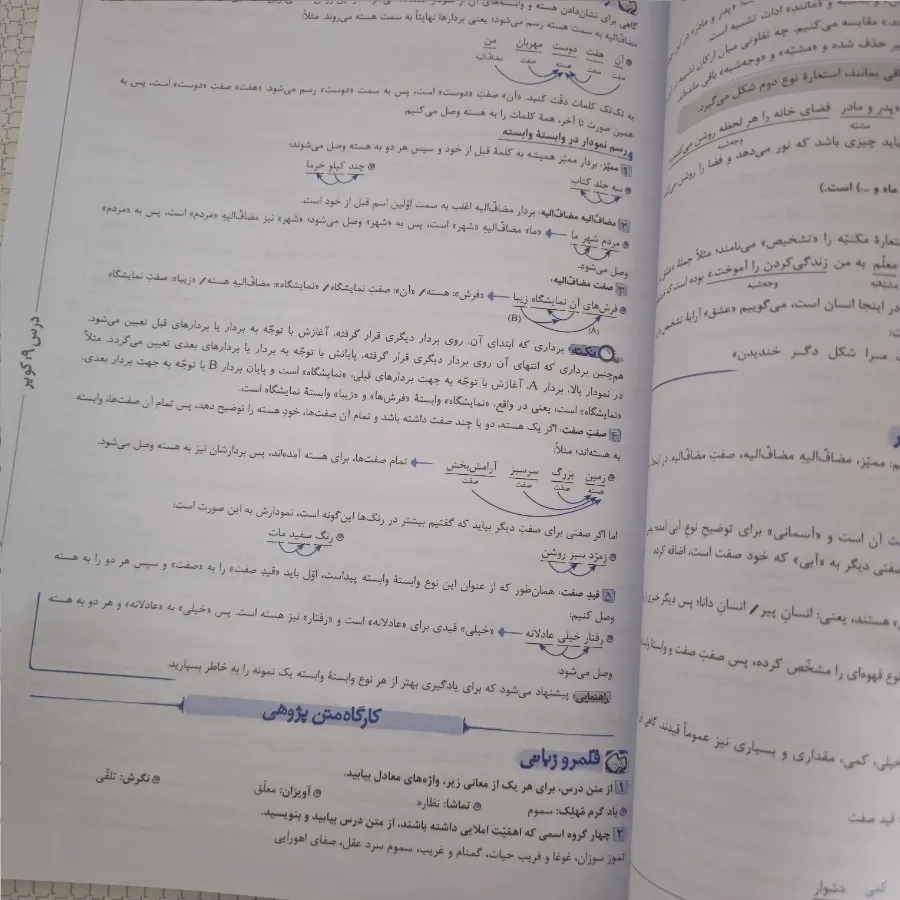 گاهی برای نشان‌دادن هسته و وابسته‌های آن از نمودار
مضاف‌الیه به سمت هسته رسم می‌شود؛ یعنی بردارها نهایتاً به سمت هسته می‌روند. مثلاً:
آن هفت دوست مهربان من
صفت صفت هسته صفت مضاف‌الیه
به تک‌تک کلمات دقّت کنید. «آن» صفتِ «دوست» است، پس به سمت «دوست» رسم می‌شود. «هفت» صفتِ «دوست» است، پس به
همین صورت تا آخر، همهٔ کلمات را به هسته وصل می‌کنیم.
رسم نمودار در وابستهٔ وابسته
۱ ممیّز: بردار ممیّز همیشه به کلمهٔ قبل از خود و سپس هر دو به هسته وصل می‌شوند:
سه جلد کتاب
چند کیلو خرما
۲ مضاف‌الیه مضاف‌الیه: بردار مضاف‌الیه اغلب به سمت اوّلین اسم قبل از خود است.
مردم شهر ما «ما» مضاف‌الیهِ «شهر» است، پس به «شهر» وصل می‌شود؛ «شهر» نیز مضاف‌الیهِ «مردم» است، پس به «مردم»
وصل می‌شود.
۳ صفت مضاف‌الیه:
فرش‌های آن نمایشگاه زیبا «فرش»: هسته / «آن»: صفتِ نمایشگاه / «نمایشگاه»: مضاف‌الیه هسته / «زیبا»: صفتِ نمایشگاه
(A) (B)
نکته برداری که ابتدای آن، روی بردار دیگری قرار گرفته، آغازش با توجّه به بردار یا بردارهای قبل تعیین می‌شود.
هم‌چنین برداری که انتهای آن روی بردار دیگری قرار گرفته، پایانش با توجّه به بردار یا بردارهای بعدی تعیین می‌گردد. مثلاً
در نمودار بالا، بردار A، آغازش با توجّه به جهت بردارهای قبلی، «نمایشگاه» است و پایان بردار B با توجّه به جهت بردار بعدی،
«نمایشگاه» است؛ یعنی در واقع، «نمایشگاه» وابستهٔ «فرش‌ها» و «زیبا» وابستهٔ نمایشگاه است.
۴ صفتِ صفت: اگر یک هسته، دو یا چند صفت داشته باشد و تمام آن صفت‌ها، خودِ هسته را توضیح دهد، پس تمام آن صفت‌ها، وابسته
به هسته‌اند؛ مثلاً:
زمین بزرگ سرسبز آرامش‌بخش تمام صفت‌ها، برای هسته آمده‌اند، پس بردارشان نیز به هسته وصل می‌شود.
هسته صفت صفت صفت
اما اگر صفتی برای صفتِ دیگر بیاید که گفتیم بیشتر در رنگ‌ها این‌گونه است، نمودارش به این صورت است:
زمرّد سبز روشن
رنگ سفید مات
۵ قیدِ صفت: همان‌طور که از عنوان این نوع وابستهٔ وابسته پیداست، اوّل باید «قیدِ صفت» را به «صفت» و سپس هر دو را به هسته
وصل کنیم:
رفتار خیلی عادلانه «خیلی» قیدی برای «عادلانه» است و «رفتار» نیز هسته است. پس «خیلی» به «عادلانه» و هر دو به هسته
وصل می‌شود.
راهنمایی: پیشنهاد می‌شود که برای یادگیری بهتر از هر نوع وابستهٔ وابسته یک نمونه را به خاطر بسپارید.
کارگاه متن پژوهی
قلمرو زبانی
۱ از متن درس، برای هر یک از معانی زیر، واژه‌های معادل بیابید.
باد گرم مُهلِک: سموم
تماشا: نظاره
آویزان: معلّق
نگرش: تلقّی
۲ چهار گروه اسمی که اهمّیّت املایی داشته باشند، از متن درس بیابید و بنویسید.
تموز سوزان، غوغا و فریب حیات، گمنام و غریب، سموم سرد عقل، صفای اهورایی
درس ۹: کویر
مقایسه می‌کنیم. چه تفاوتی میان ارکان تشبیه
حذف شده و «مشبّه» و «وجه‌شبه» باقی
باقی بمانند، استعارهٔ نوع دوم شکل می‌گیرد.
«پدر و مادر فضای خانه را هر لحظه روشن می‌کنند»
مشبّه وجه‌شبه
باید چیزی باشد که نور می‌دهد و فضا را روشن
ماه و ...) است.)
استعارهٔ مکنیّه را «تشخیص» می‌نامند؛ مثلاً جملهٔ
معلّم به من زندگی‌کردن را آموخت.» بوده است
مشبّه‌به وجه‌شبه
در اینجا انسان است، می‌گوییم «عشق» آرایهٔ تشخیص
مرا شکل دگر خندیدن»
ممیّز، مضاف‌الیهِ مضاف‌الیه، صفتِ مضاف‌الیه.
آن است و «آسمانی» برای توضیح نوع آبی آمده
صفتی دیگر به «آبی» که خود صفت است، اضافه کرده
هستند، یعنی: انسانِ پیر / انسانِ دانا؛ پس دیگر
نوع قهوه‌ای را مشخّص کرده، پس صفتِ صفت و وابستهٔ
خیلی، کمی، مقداری و بسیاری نیز عموماً قیدند.
قید صفت
کمی دشوار